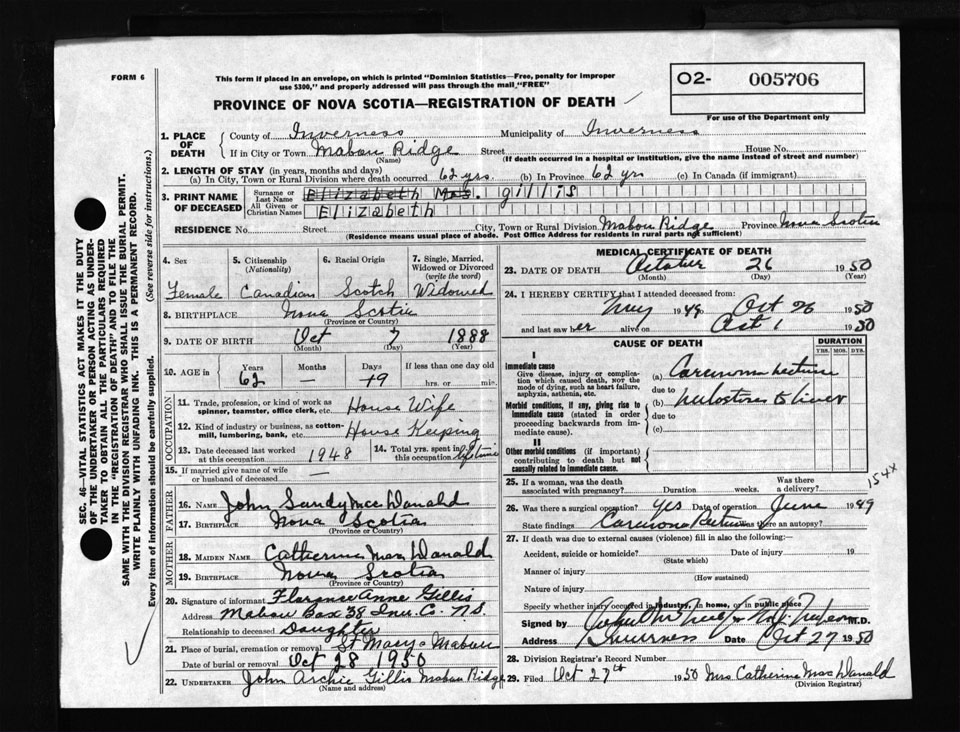 FORM 6
This form if placed in an envelope, on which is printed "Dominion Statistics—Free, penalty for improper
use $300," and properly addressed will pass through the mail "FREE"
O2- 005706
For use of the Department only
PROVINCE OF NOVA SCOTIA—REGISTRATION OF DEATH
1. PLACE OF DEATH
County of Inverness Municipality of Inverness
If in City or Town Mabou Ridge Street House No.
(Name) (If death occurred in a hospital or institution, give the name instead of street and number)
2. LENGTH OF STAY (in years, months and days)
(a) In City, Town or Rural Division where death occurred 62 yrs. (b) In Province 62 yrs (c) In Canada (if immigrant)
3. PRINT NAME OF DECEASED
Surname or Last Name Elizabeth Mrs. gillis
All Given or Christian Names Elizabeth
RESIDENCE No. Street City, Town or Rural Division Mabou Ridge Province Nova Scotia
(Residence means usual place of abode. Post Office Address for residents in rural parts not sufficient)
4. Sex 5. Citizenship (Nationality) 6. Racial Origin 7. Single, Married, Widowed or Divorced (write the word)
Female Canadian Scotch Widowed
8. BIRTHPLACE Nova Scotia
(Province or Country)
9. DATE OF BIRTH Oct 7 1888
(Month) (Day) (Year)
10. AGE in Years Months Days If less than one day old
62 — 19 hrs. or min.
OCCUPATION
11. Trade, profession, or kind of work as spinner, teamster, office clerk, etc. House Wife
12. Kind of industry or business, as cotton-mill, lumbering, bank, etc. House Keeping
13. Date deceased last worked at this occupation 1948 14. Total yrs. spent in this occupation lifetime
15. If married give name of wife or husband of deceased —
FATHER
16. Name John Sandy MacDonald
17. Birthplace Nova Scotia
(Province or Country)
MOTHER
18. Maiden Name Catherine MacDonald
19. Birthplace Nova Scotia
(Province or Country)
20. Signature of informant Florence Anne Gillis
Address Mabou Box 38 Inv. Co. N.S.
Relationship to deceased Daughter
21. Place of burial, cremation or removal St Marys Mabou
Date of burial or removal Oct 28 1950
22. Undertaker John Archie Gillis Mabou Ridge
(Name and address)
MEDICAL CERTIFICATE OF DEATH
23. DATE OF DEATH October 26 1950
(Month) (Day) (Year)
24. I HEREBY CERTIFY that I attended deceased from:
May 1949 Oct 26 1950
and last saw her alive on Oct 1 1950
CAUSE OF DEATH DURATION
YRS. MOS. DYS.
I
Immediate cause
Give disease, injury or complication which caused death, not the mode of dying, such as heart failure, asphyxia, asthenia, etc.
(a) Carcinoma rectum
due to
Morbid conditions, if any, giving rise to immediate cause (stated in order proceeding backwards from immediate cause).
(b) metastases to liver
due to
(c)
II
Other morbid conditions (if important) contributing to death but not causally related to immediate cause.
154X
25. If a woman, was the death associated with pregnancy? Duration weeks. Was there a delivery?
26. Was there a surgical operation? Yes Date of operation June 1949
State findings Carcinoma Rectum Was there an autopsy?
27. If death was due to external causes (violence) fill in also the following:
Accident, suicide or homicide? Date of injury 19
(State which)
Manner of injury
(How sustained)
Nature of injury
Specify whether injury occurred in industry, in home, or in public place
Signed by M.D.
Address Inverness Date Oct 27 1950
28. Division Registrar's Record Number
29. Filed Oct 27th 1950 Mrs Catherine MacDonald
(Division Registrar)
SEC. 46—VITAL STATISTICS ACT MAKES IT THE DUTY
OF THE UNDERTAKER OR PERSON ACTING AS UNDER-
TAKER TO OBTAIN ALL THE PARTICULARS REQUIRED
IN THE "REGISTRATION OF DEATH" AND TO FILE THE
SAME WITH THE DIVISION REGISTRAR WHO SHALL ISSUE THE BURIAL PERMIT.
WRITE PLAINLY WITH UNFADING INK. THIS IS A PERMANENT RECORD.
Every item of information should be carefully supplied. (See reverse side for instructions.)